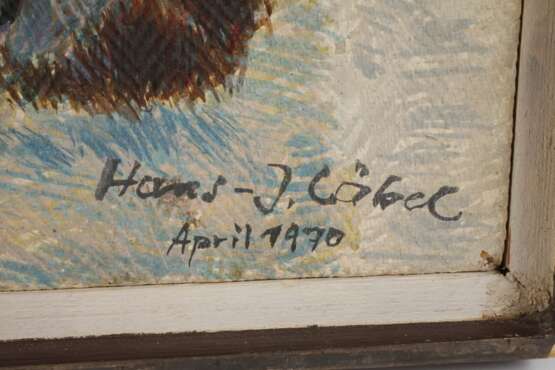 Hans-J. Göbel
April 1970